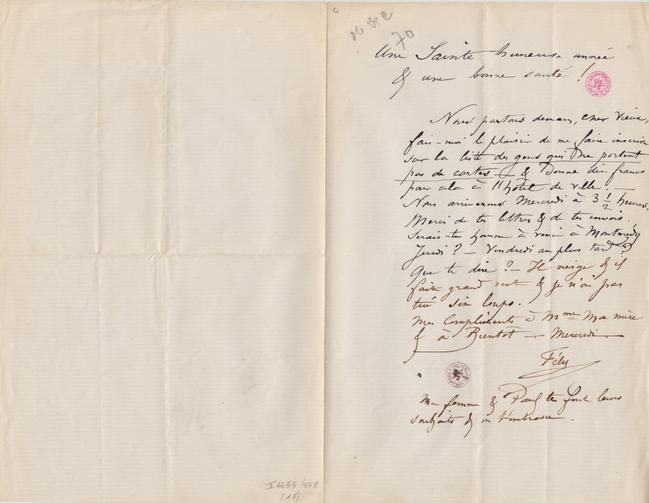 26 Dec
70
Une Sainte heureuse année
& une bonne santé !
Nous partons demain, cher Vieux,
fais-moi le plaisir de me faire inscrire
sur la liste des gens qui ne portent
pas de cartes — & Donne dix francs
par cela à l'hôtel de ville. —
Nous arriverons Mercredi à 3 1/2 heures.
Merci de tes lettres & de tes envois.
Serais-tu homme à venir à
Jeudi ? — Vendredi au plus tard ?
Que te dire ? — Il neige & il
fait grand vent & je n'ai pas
tué six loups.
Mes Compliments à Mme Ma mère
& à Bientot — Mercredi —
Fély
Ma femme & Paul te font leurs
souhaits & on t'embrasse.
II 6655/468
(17)